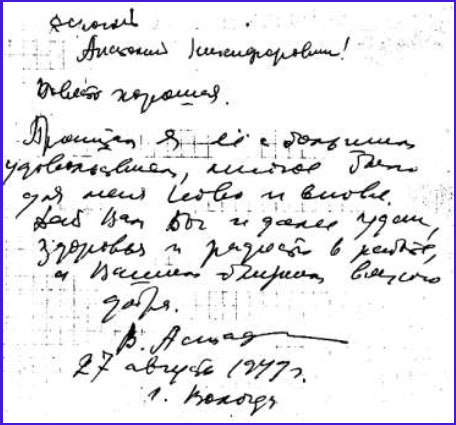 Дорогой
Анатолий Никифорович!
Повесть хорошая.
Прочитал я её с большим
удовольствием, многое было
для меня ново и вновь.
Дай Вам Бог и далее удачи,
здоровья и радости в работе,
а Вашим близким всякого
добра.
В. Астаф
27 августа 1977 г.
г. Вологда